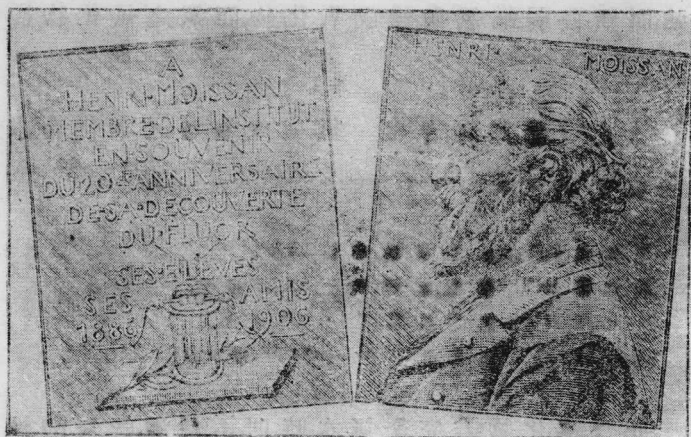 A
HENRI·MOISSAN
MEMBRE·DE·L'INSTITUT
EN·SOUVENIR
DU·20e·ANNIVERSAIRE
DE·SA·DECOUVERTE
DU·FLUOR
SES·ELEVES
SES AMIS
1886 1906
HENRI MOISSAN